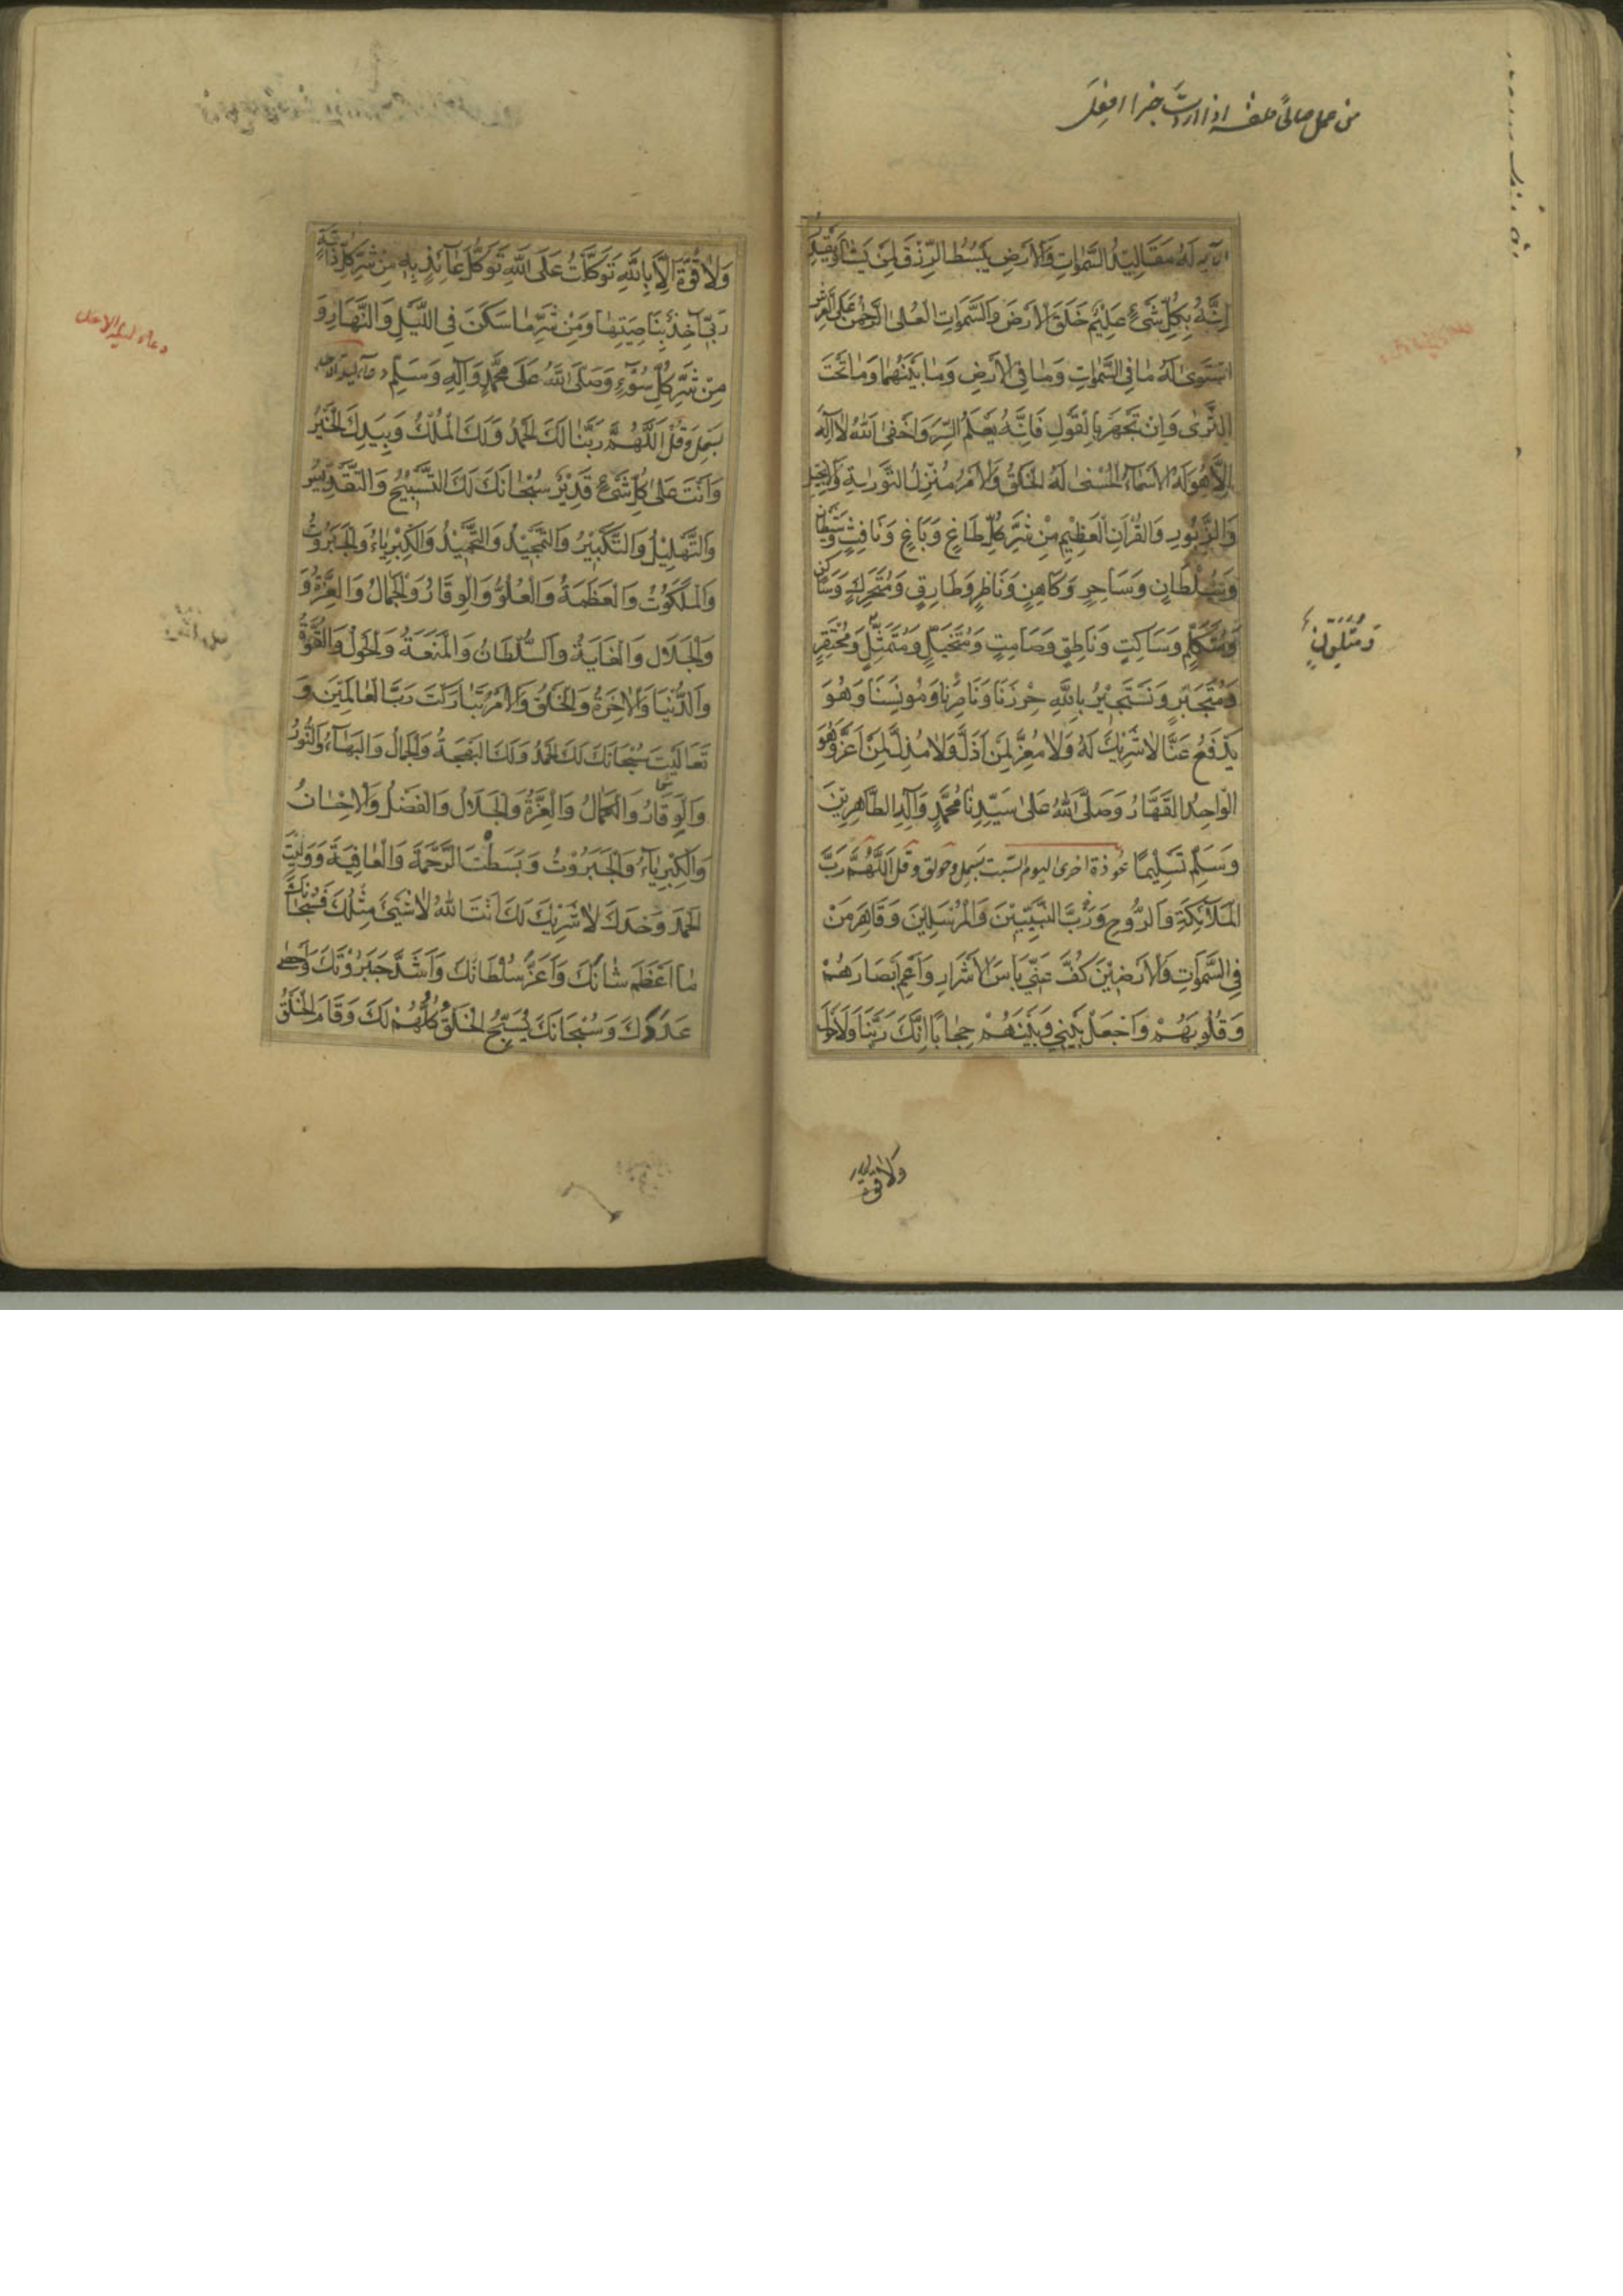 من عمل صالحاً فلنفسه اذا اردت
الآيه لَهُ مَقَالِيدُ السَّمٰوَاتِ وَالْاَرْضِ يَبْسُطُ الرِّزْقَ لِمَنْ يَشَآءُ وَيَقْدِرُ
اِنَّهُ بِكُلِّ شَيْءٍ عَلِيْمٌ خَلَقَ الْاَرْضَ وَالسَّمٰوَاتِ الْعُلٰى الرَّحْمٰنُ عَلَى الْعَرْشِ
اسْتَوٰى لَهُ مَا فِي السَّمٰوَاتِ وَمَا فِي الْاَرْضِ وَمَا بَيْنَهُمَا وَمَا تَحْتَ
الثَّرٰى وَاِنْ تَجْهَرْ بِالْقَوْلِ فَاِنَّهُ يَعْلَمُ السِّرَّ وَاَخْفٰى اَللهُ لَا اِلٰهَ
اِلَّا هُوَ لَهُ الْاَسْمَآءُ الْحُسْنٰى لَهُ الْخَلْقُ وَالْاَمْرُ مُنْزِلُ التَّوْرٰيةِ وَالْاِنْجِيلِ
وَالزَّبُورِ وَالْقُرْاٰنِ الْعَظِيْمِ مِنْ شَرِّ كُلِّ طَاغٍ وَبَاغٍ وَنَافِثٍ وَشَيْطَانٍ
وَسُلْطَانٍ وَسَاحِرٍ وَكَاهِنٍ وَنَاظِرٍ وَطَارِقٍ وَمُتَحَرِّكٍ وَسَاكِنٍ
وَمُتَكَلِّمٍ وَسَاكِتٍ وَنَاطِقٍ وَصَامِتٍ وَمُتَخَيِّلٍ وَمُتَمَثِّلٍ وَمُحْتَقِرٍ
وَمُتَلَوِّنٍ
وَمُتَجَبِّرٍ وَنَسْتَجِيْرُ بِاللهِ حِرْزِنَا وَنَاصِرِنَا وَمُونِسِنَا وَهُوَ
يَدْفَعُ عَنَّا لَا شَرِيْكَ لَهُ وَلَا مُعِزَّ لِمَنْ اَذَلَّ وَلَا مُذِلَّ لِمَنْ اَعَزَّ وَهُوَ
الْوَاحِدُ الْقَهَّارُ وَصَلَّى اللهُ عَلٰى سَيِّدِنَا مُحَمَّدٍ وَآلِهِ الطَّاهِرِيْنَ
وَسَلَّمَ تَسْلِيْمًا عُوذة اخرى ليوم السّبت بَسمِل وحولق وقل اَللّٰهُمَّ رَبَّ
الْمَلَآئِكَةِ وَالرُّوحِ وَرَبَّ النَّبِيِّيْنَ وَالْمُرْسَلِيْنَ وَقَاهِرَ مَنْ
فِي السَّمٰوَاتِ وَالْاَرَضِيْنَ كُفَّ عَنِّي بَأْسَ الْاَشْرَارِ وَاَعْمِ اَبْصَارَهُمْ
وَقُلُوبَهُمْ وَاجْعَلْ بَيْنِي وَبَيْنَهُمْ حِجَابًا اِنَّكَ رَبُّنَا وَلَاحَوْلَ
وَلَا قوّة
وَلَا قُوَّةَ اِلَّا بِاللهِ تَوَكَّلْتُ عَلَى اللهِ تَوَكُّلَ عَآئِذٍ بِهِ مِنْ شَرِّ كُلِّ دَآبَّةٍ
رَبِّي آخِذٌ بِنَاصِيَتِهَا وَمِنْ شَرِّ مَا سَكَنَ فِي اللَّيْلِ وَالنَّهَارِ وَ
دعاء ليلة الاحد
مِنْ شَرِّ كُلِّ سُوْٓءٍ وَصَلَّى اللهُ عَلَى مُحَمَّدٍ وَآلِهِ وَسَلَّمَ دعآء ليلة الاحد
بَسمِل وَقُلْ اَللّٰهُمَّ رَبَّنَا لَكَ الْحَمْدُ وَلَكَ الْمُلْكُ وَبِيَدِكَ الْخَيْرُ
وَاَنْتَ عَلٰى كُلِّ شَيْءٍ قَدِيْرٌ سُبْحَانَكَ لَكَ التَّسْبِيْحُ وَالتَّقْدِيْسُ
وَالتَّهْلِيْلُ وَالتَّكْبِيْرُ وَالتَّمْجِيْدُ وَالتَّحْمِيْدُ وَالْكِبْرِيَاءُ وَالْجَبَرُوتُ
وَالْمَلَكُوتُ وَالْعَظَمَةُ وَالْعُلُوُّ وَالْوَقَارُ وَالْجَمَالُ وَالْعِزَّةُ وَ
وَالْجَلَالُ وَالْغَايَةُ وَالسُّلْطَانُ وَالْمَنَعَةُ وَالْحَوْلُ وَالْقُوَّةُ
وَالدُّنْيَا وَالْاٰخِرَةُ وَالْخَلْقُ وَالْاَمْرُ تَبَارَكْتَ رَبَّ الْعَالَمِيْنَ وَ
تَعَالَيْتَ سُبْحَانَكَ لَكَ الْحَمْدُ وَلَكَ الْبَهْجَةُ وَالْجَمَالُ وَالْبَهَآءُ وَالنُّورُ
وَالْوَقَارُ وَالْكَمَالُ وَالْعِزَّةُ وَالْجَلَالُ وَالْفَضْلُ وَالْاِحْسَانُ
وَالْكِبْرِيَآءُ وَالْجَبَرُوْتُ وَبَسَطْتَ الرَّحْمَةَ وَالْعَافِيَةَ وَوَلِيْتَ
الْحَمْدَ وَحْدَكَ لَا شَرِيْكَ لَكَ اَنْتَ اللهُ لَا شَيْءَ مِثْلُكَ فَسُبْحَانَكَ
مَا اَعْظَمَ شَانَكَ وَاَعَزَّ سُلْطَانَكَ وَاَشَدَّ جَبَرُوْتَكَ وَاَحْصٰى
عَدَدَكَ وَسُبْحَانَكَ يُسَبِّحُ الْخَلْقُ كُلُّهُمْ لَكَ وَقَامَ الْخَلْقُ